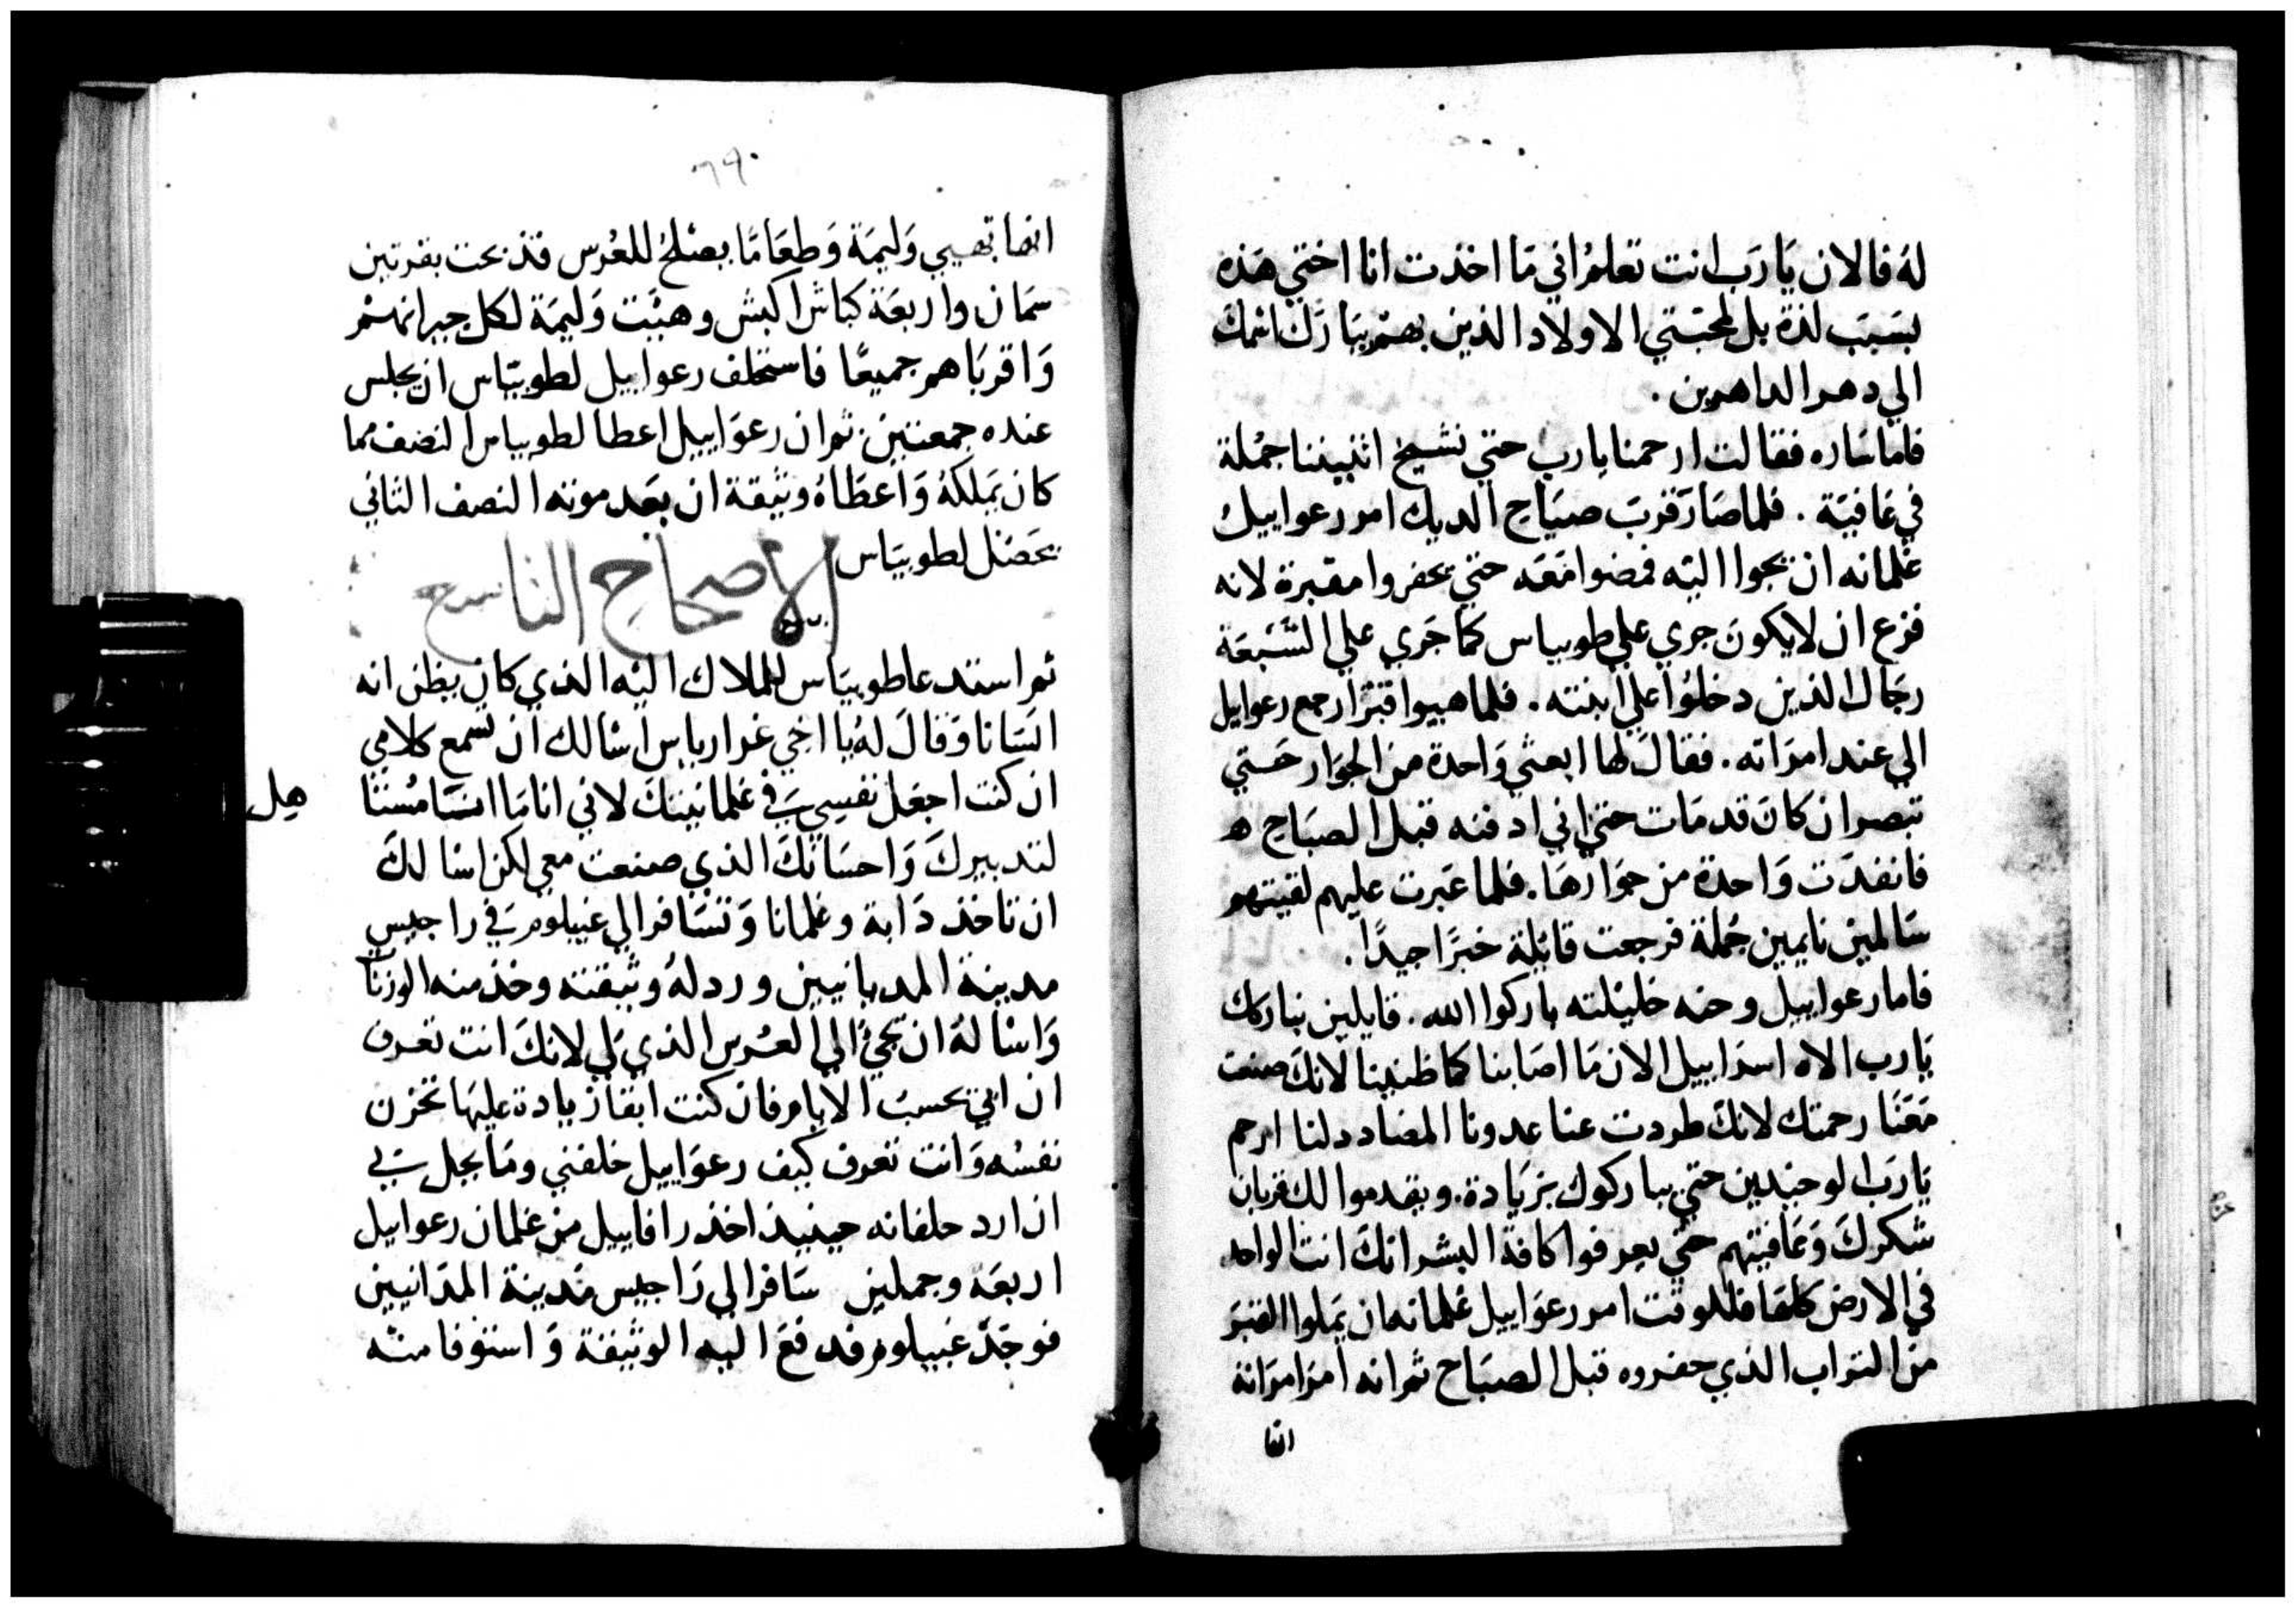 له فالان يَا رَب انت تعلمُ اني مَا اخذت انا اختي هَذه
بسَبَب لذة بل لمحبّتي الاولاد الذين بهمْ يتبَارَك اسْمك
الي دهر الداهرين .
فاما سَاره فقالت ارحمنا يا رب حتي نشيخ اثنيننا جُملة
في عَافيَة . فلما صَار قربَ صيَاح الديك امر رعواييل
غلمانه ان يجوا اليه فمضوا مَعَه حتي يحفروا مقبرة لانه
فزع ان لا يكونَ جري علي طوبياس كما جَري علي السَّبعَة
رجَال الذين دخلوا علي ابنته . فلما هييوا قبرًا رجع رعواييل
الي عند امرَاته . فقالَ لها ابعثي وَاحدة من الجوَار حَتي
تبصر ان كانَ قد مَات حتي اني ادفنه قبل الصبَاح ه
فانفدَت وَاحدة من جوَارهَا . فلما عَبرت عليهم لقيتهم
سَالمين نايمين جُملة فرجعت قايلة خبرًا جيدًا .
فاما رعواييل وحنه خليلته باركوا الله . قايلين نباركك
يَا رب الاه اسرَاييل الان مَا اصَابنا كما ظنينا لانكَ صنعت
مَعَنَا رحمتك لانكَ طردت عنا عدونا المضادد لنا ارحم
يَا رَب الوحيدين حتي يباركوك بزيَادة . ويقدموا لك قربان
شكركَ وَعَافيتهم حتي يعرفوا كافة البشر انكَ انت الواحد
في الارض كلهَا فللوقت امر رعوَاييل غلمانه ان يَملوا القبرَ
منَ التراب الذي حفروه قبل الصبَاح ثم انه امرَ امرَاته
انها
٦٩٠
انها تهيي وَليمَة وَطعَامًا يصْلحُ للعُرس فذبحت بقرتين
سمَان واربعَة كباش اكبش وهيَّت وَليمَة لكل جيرانهمْ
وَاقربَاهم جميعًا فاستحلف رعواييل لطوبيّاس ان يجلس
عنده جمعتين . ثم ان رعوَاييل اعطا لطوبياس النصف مما
كان يَملكهُ وَاعطَاهُ وثيقة ان بعَد موته النصف الثاني
يحَصَل لطوبيَاس
الاصحاح التاسع
ثم استدعا طوبيَاس للملاك اليه الذي كان يظن انه
انسَانا وَقالَ لهُ يا اخي غوارياس اسَالك ان تسمع كلامي
ان كنت اجعَل نفسي في غلمانيتكَ لاني انا مَا امسَا مُستتا هل
لتدبيركَ وَاحسَانكَ الذي صنعت معي لكن اسَا لكَ
ان تاخذ دَابة وغلمانا وَتسَافر الي غبيلوم في راجيس
مدينة المديانيين ورد لهُ وثيقته وخذ منه الوزنَات
وَاسَا لهُ ان يجيَ الي العُرس الذي لي لانكَ انت تعرف
ان ابي يحسبَ الايام فان كنت ابقا زيادة عليهَا تحزن
نفسُه وَانت تعرف كيف رعوَاييل حلفني ومَا يجل بي
ان ارد حلفانه حينيذ اخذ رافاييل من غلمان رعواييل
اربعَة وجملين سَافر الي رَاجيس مَدينة المدَانيين
فوجدَ غبيلوم فدفعَ اليه الوثيقة وَاستوفا منه